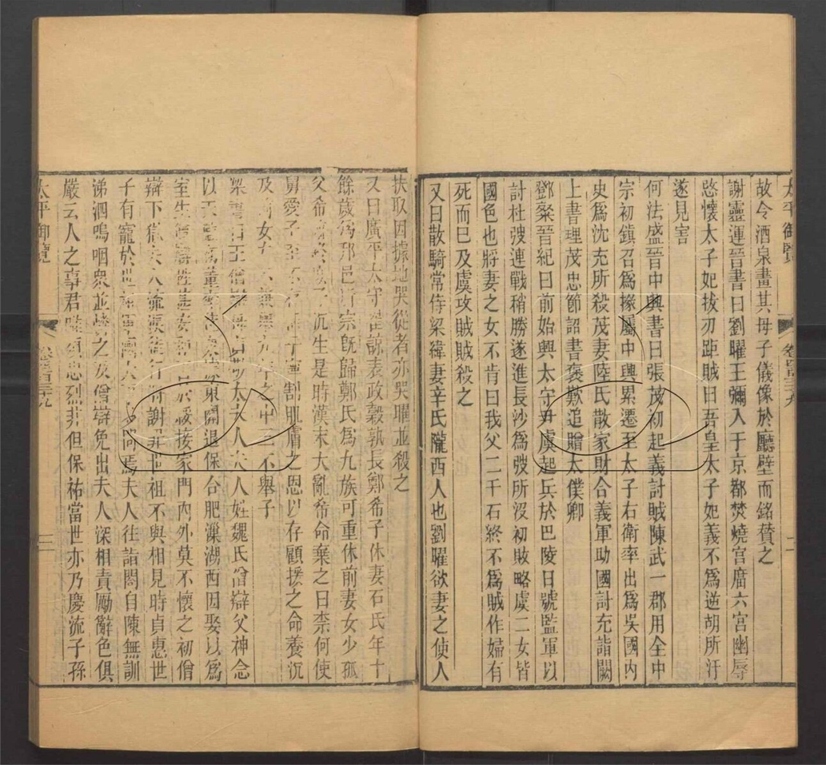 太平御覽 卷四百三十九 二
故令酒泉畫其母子儀像於廳壁而銘贊之
謝靈運晉書曰劉曜王彌入于京都焚燒宮廟六宮幽辱
愍懷太子妃拔刃距賊曰吾皇太子妃義不爲逆胡所汙
遂見害
何法盛晉中興書曰張茂初起義討賊陳武一郡用全中
宗初鎮召爲掾屬中興累遷至太子右衛率出爲吳國內
史爲沈充所殺茂妻陸氏散家財合義軍助國討充詣闕
上書理茂忠節詔書褒歎追贈太僕卿
鄧粲晉紀曰前始興太守尹虞起兵於巴陵日號監軍以
討杜弢連戰稍勝遂進長沙爲弢所沒初敗略虞二女皆
國色也將妻之女不肯曰我父二千石終不爲賊作婦有
死而巳及虞攻賊賊殺之
又曰散騎常侍梁緯妻辛氏隴西人也劉曜欲妻之使人
扶取因據地哭從者亦哭曜並殺之
又曰廣平太守崔諒表政穀孰長鄭希子休妻石氏年十
餘歲爲邦邑 宗旣歸鄭氏爲九族可重休前妻女少孤
父希 沉生是時漢末大亂希命棄之曰柰何使
舅 子 割肌膚之恩以存顧援之命養沉
及 女 中 不舉子
梁書曰王僧 太夫人 人姓魏氏僧辯父神念
以 東關退保合肥漅湖西因娶以爲
室生 性 接家門內外莫不懷之初僧
辯下獄夫人 行將謝罪世祖不與相見時貞惠世
子有寵於世祖軍 焉夫人往詣閤自陳無訓
涕泗嗚咽衆並 之及僧辯免出夫人深相責勵辭色俱
嚴云人之事君惟 忠烈非但保祐當世亦乃慶流子孫
太平御覽 三